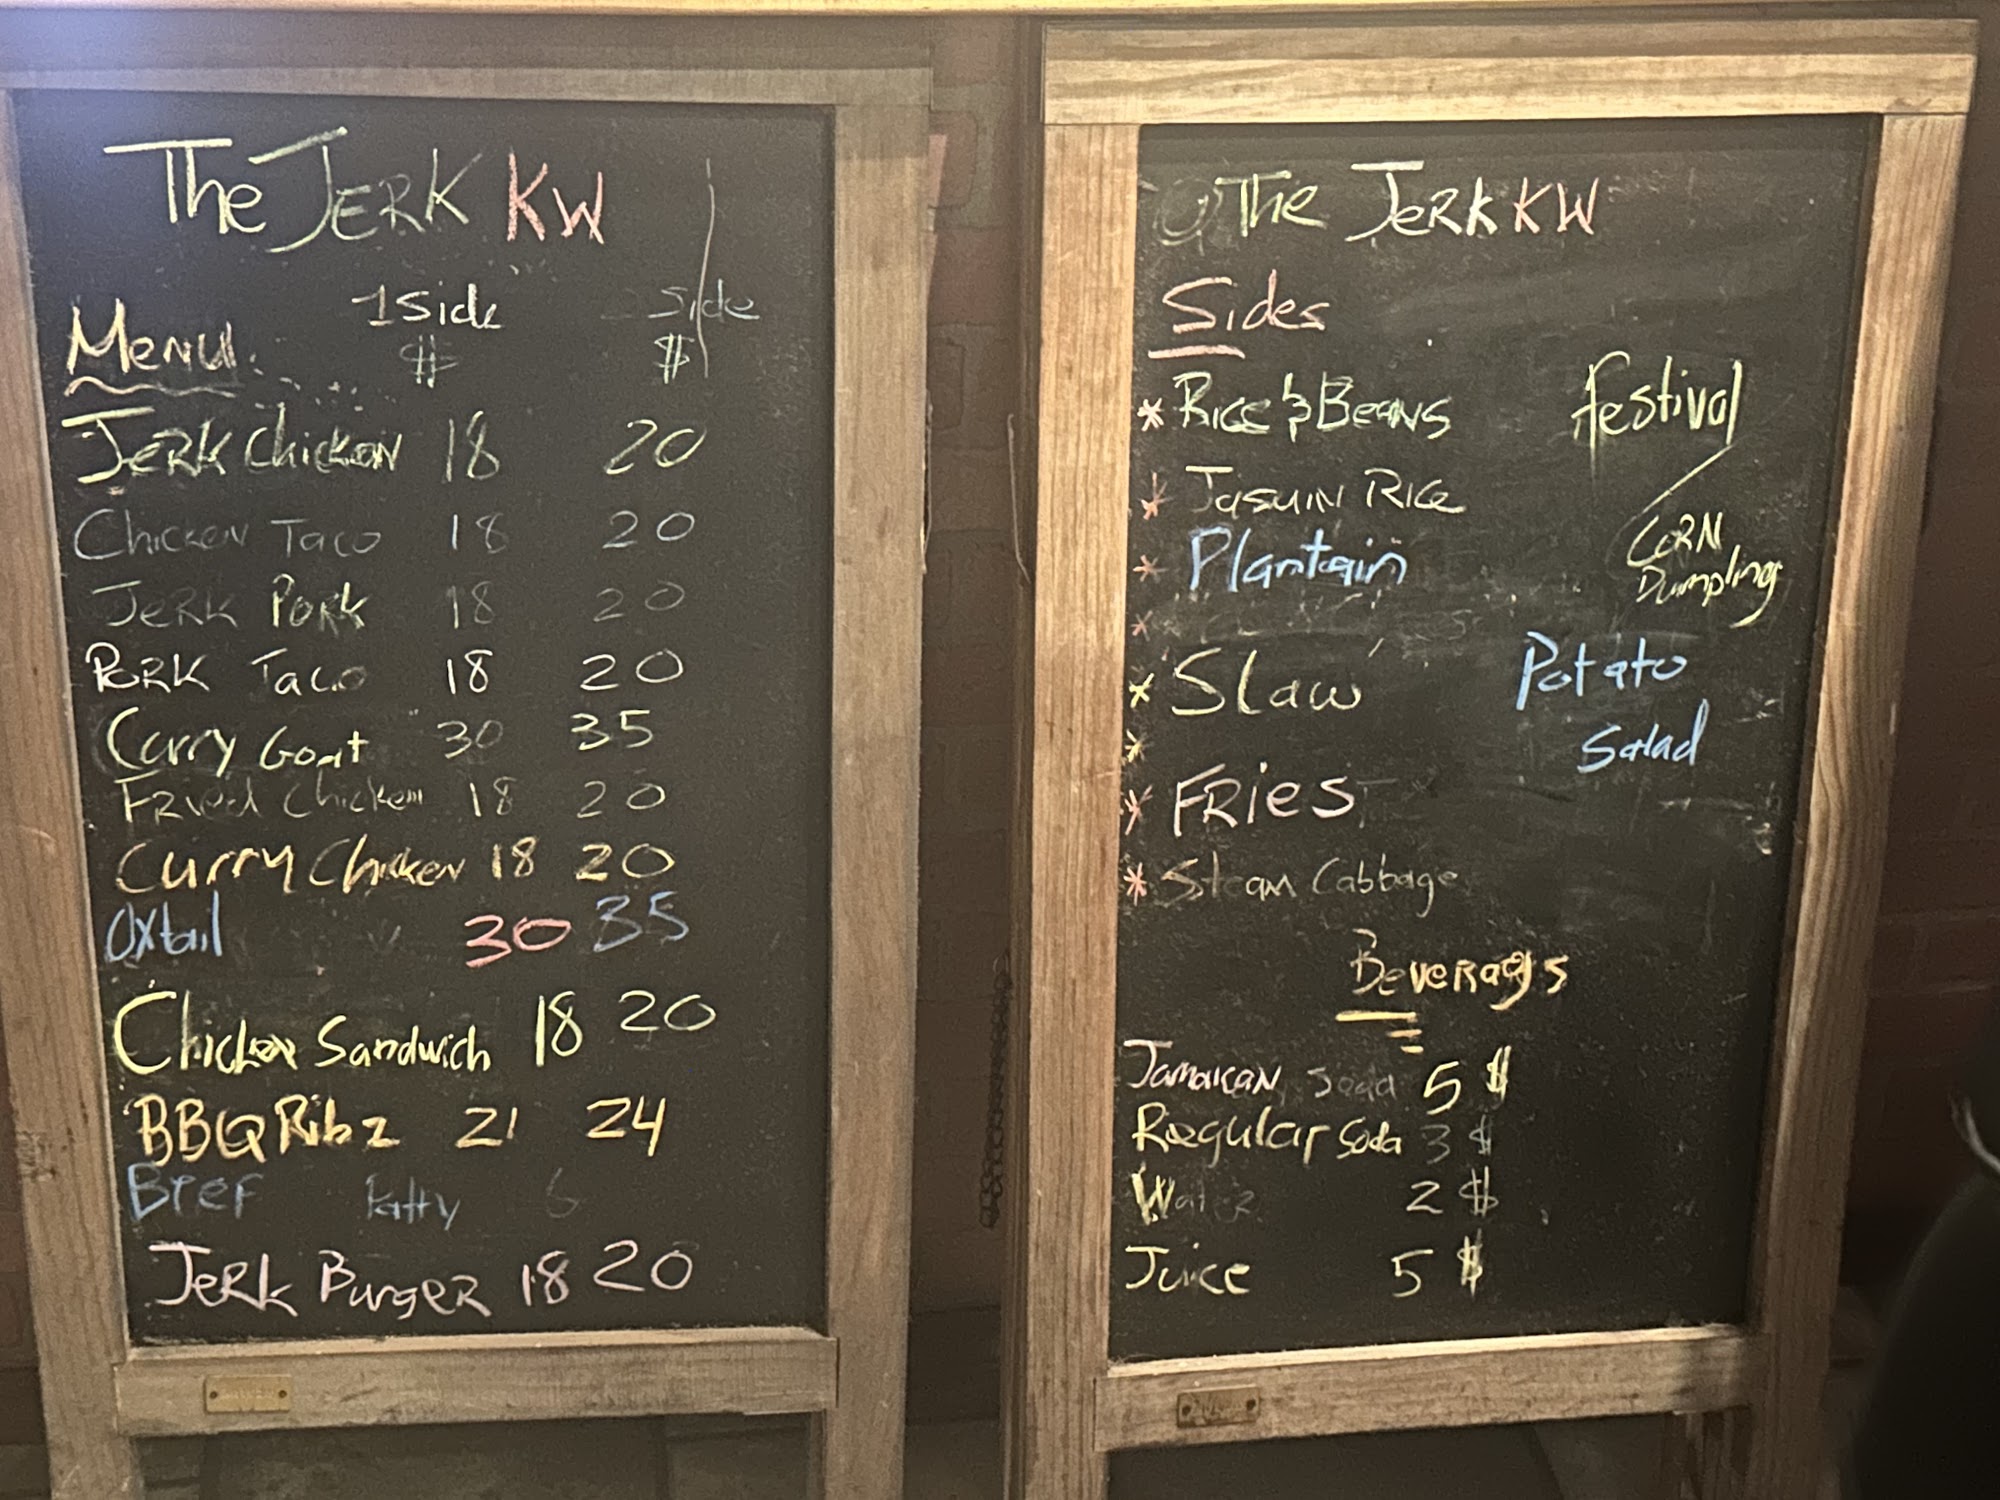 The JERK KW
Menu 1 Side Side
$ $
JERK Chicken 18 20
Chicken Taco 18 20
Jerk Pork 18 20
Pork Taco 18 20
Curry Goat 30 35
Fried Chicken 18 20
Curry Chicken 18 20
Oxtail 30 35
Chicken Sandwich 18 20
BBQ Ribz 21 24
Beef Patty 6
Jerk Burger 18 20
The Jerk KW
Sides
* Rice & Beans
* Jasmin Rice
* Plantain
*
* Slaw
*
* Fries
* Steam Cabbage
Festival
Corn
Dumpling
Potato
Salad
Beverages
Jamaican Soda 5 $
Regular Soda 3 $
Water 2 $
Juice 5 $